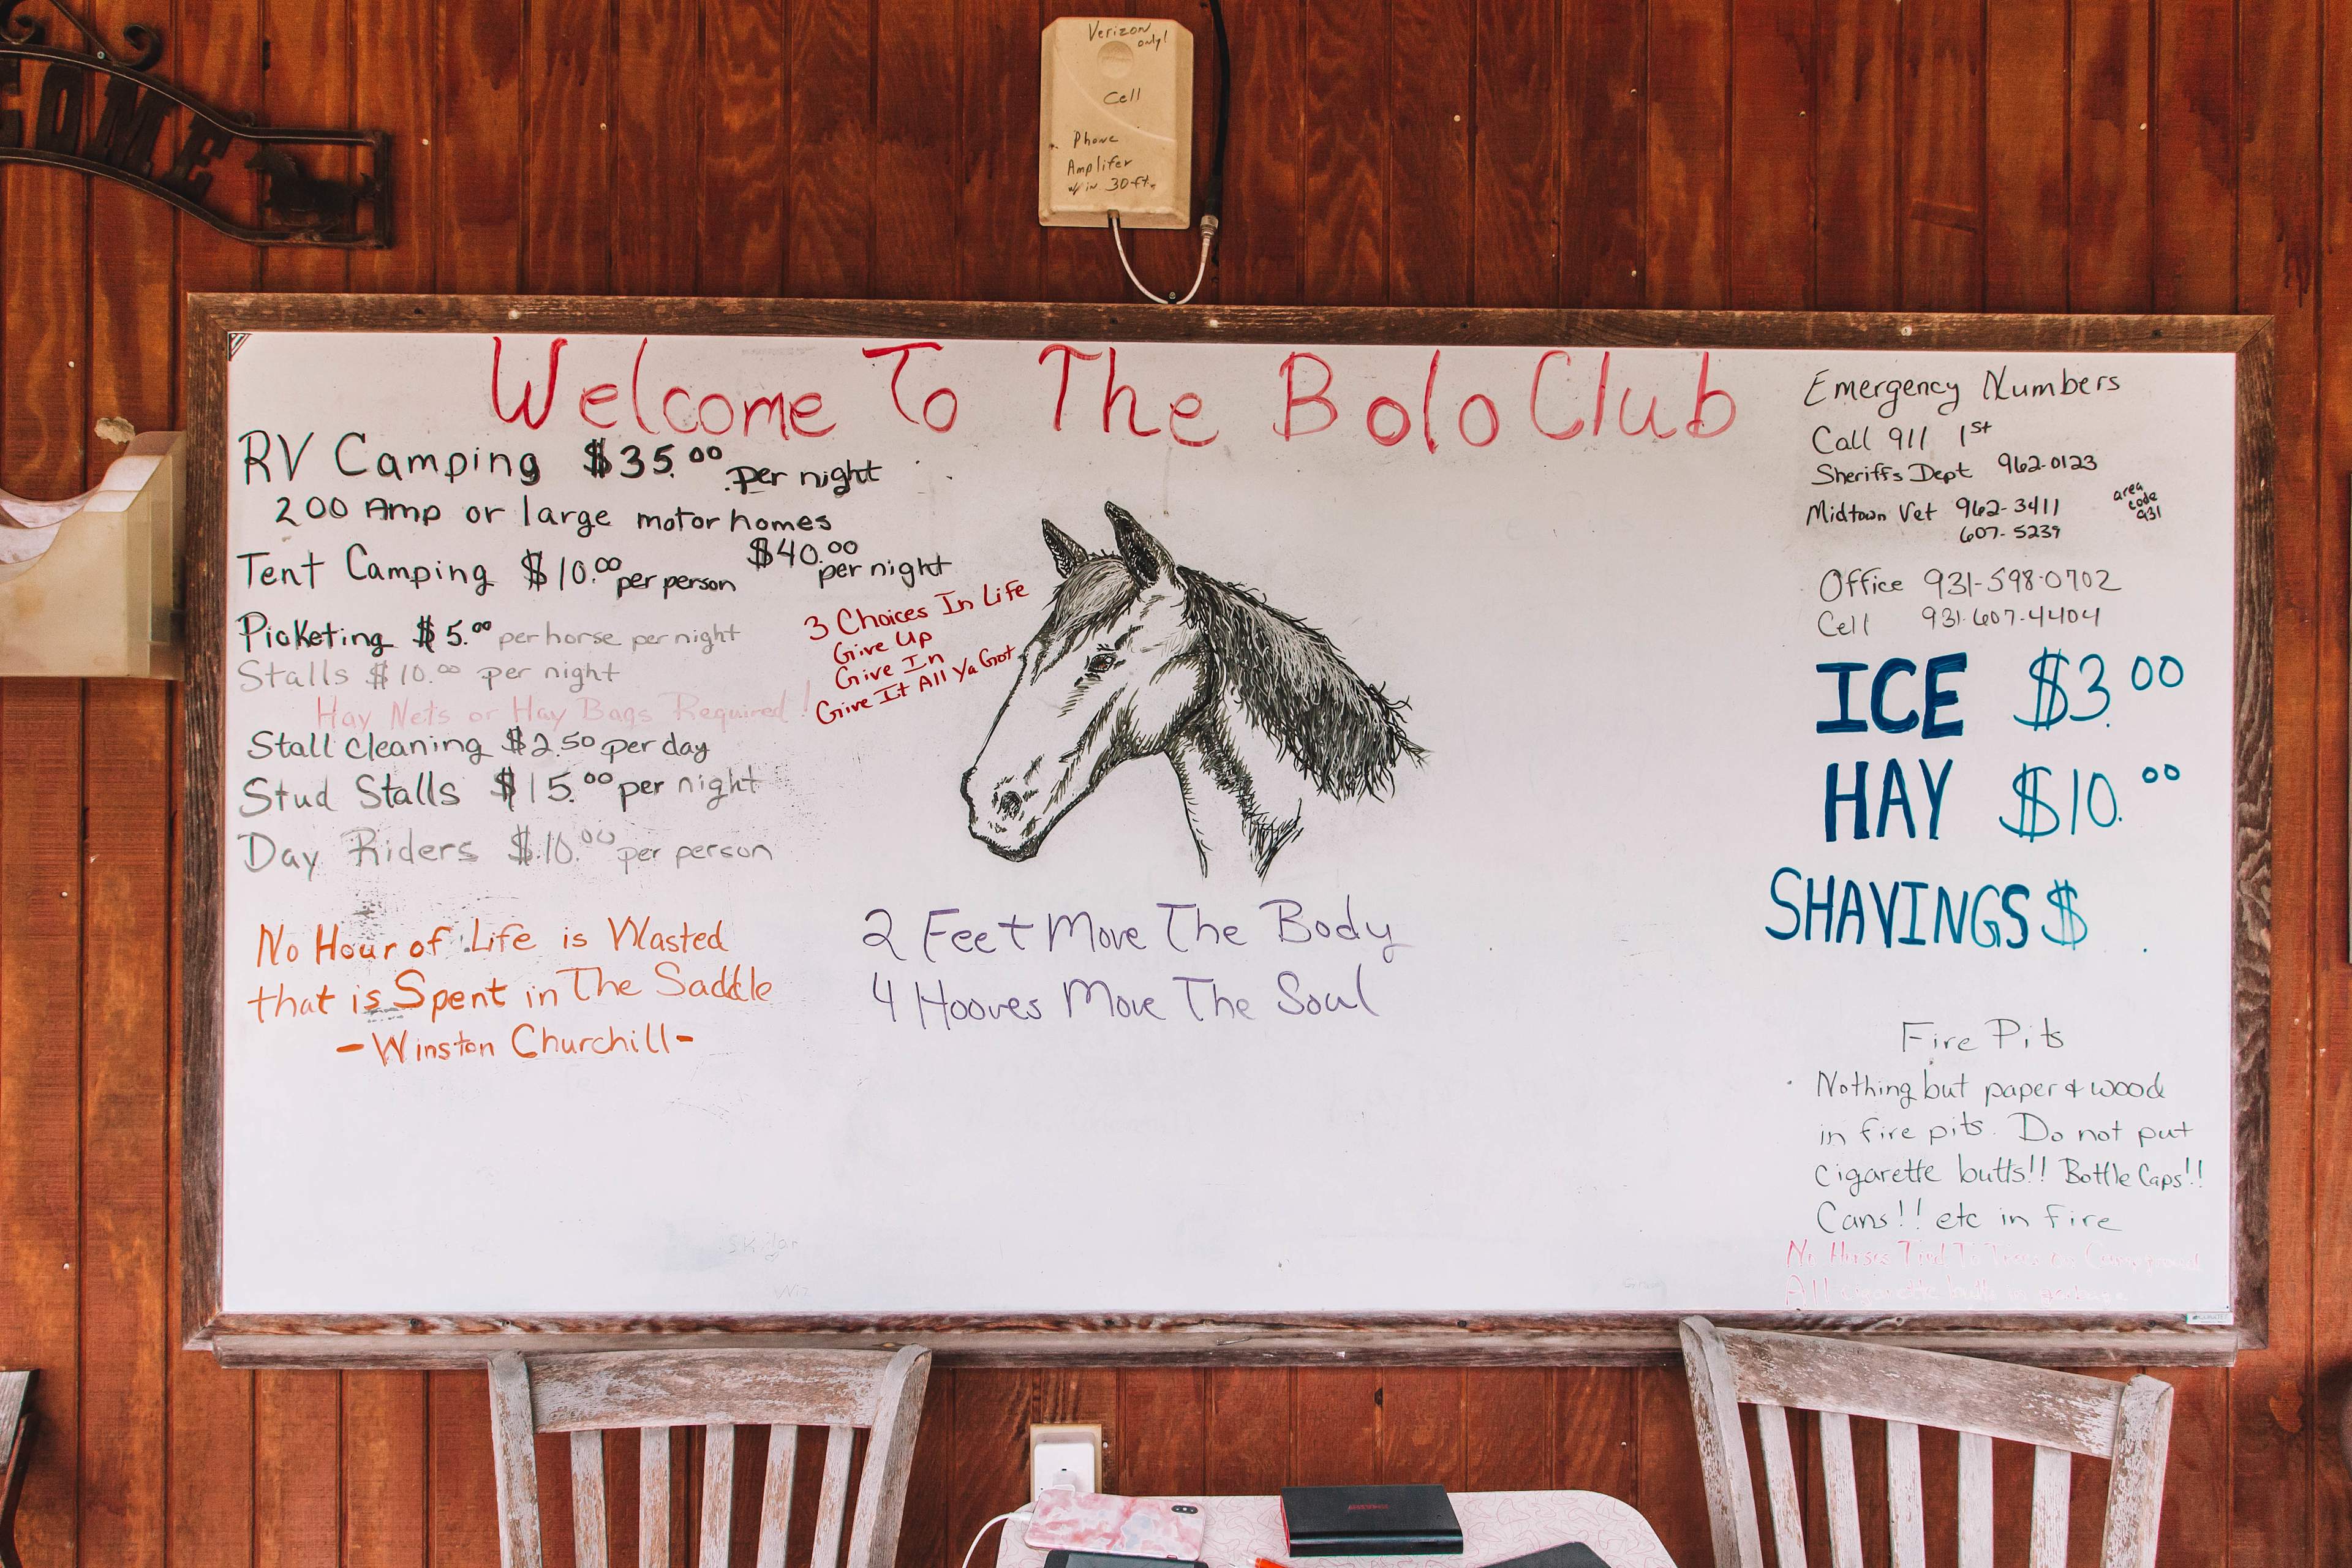 Verizon
only!
Cell
Phone
Amplifer
w/in 30ft.
OME
Welcome To The Bolo Club
RV Camping $35.00 per night
200 Amp or large motor homes
$40.00 per night
Tent Camping $10.00 per person
Picketing $5.00 per horse per night
Stalls $10.00 per night
Hay Nets or Hay Bags Required!
Stall cleaning $2.50 per day
Stud Stalls $15.00 per night
Day Riders $10.00 per person
No Hour of Life is Wasted
that is Spent in The Saddle
-Winston Churchill-
3 Choices In Life
Give Up
Give In
Give It All Ya Got
2 Feet Move The Body
4 Hooves Move The Soul
Emergency Numbers
Call 911 1st
Sheriffs Dept 962-0123
Midtown Vet 962-3411
607-5239
area
code
931
Office 931-598-0702
Cell 931-607-4404
ICE $3.00
HAY $10.00
SHAVINGS $
Fire Pits
Nothing but paper & wood
in fire pits. Do not put
cigarette butts!! Bottle Caps!!
Cans!! etc in fire
No Horses Tied To Trees
All cigarette butts in